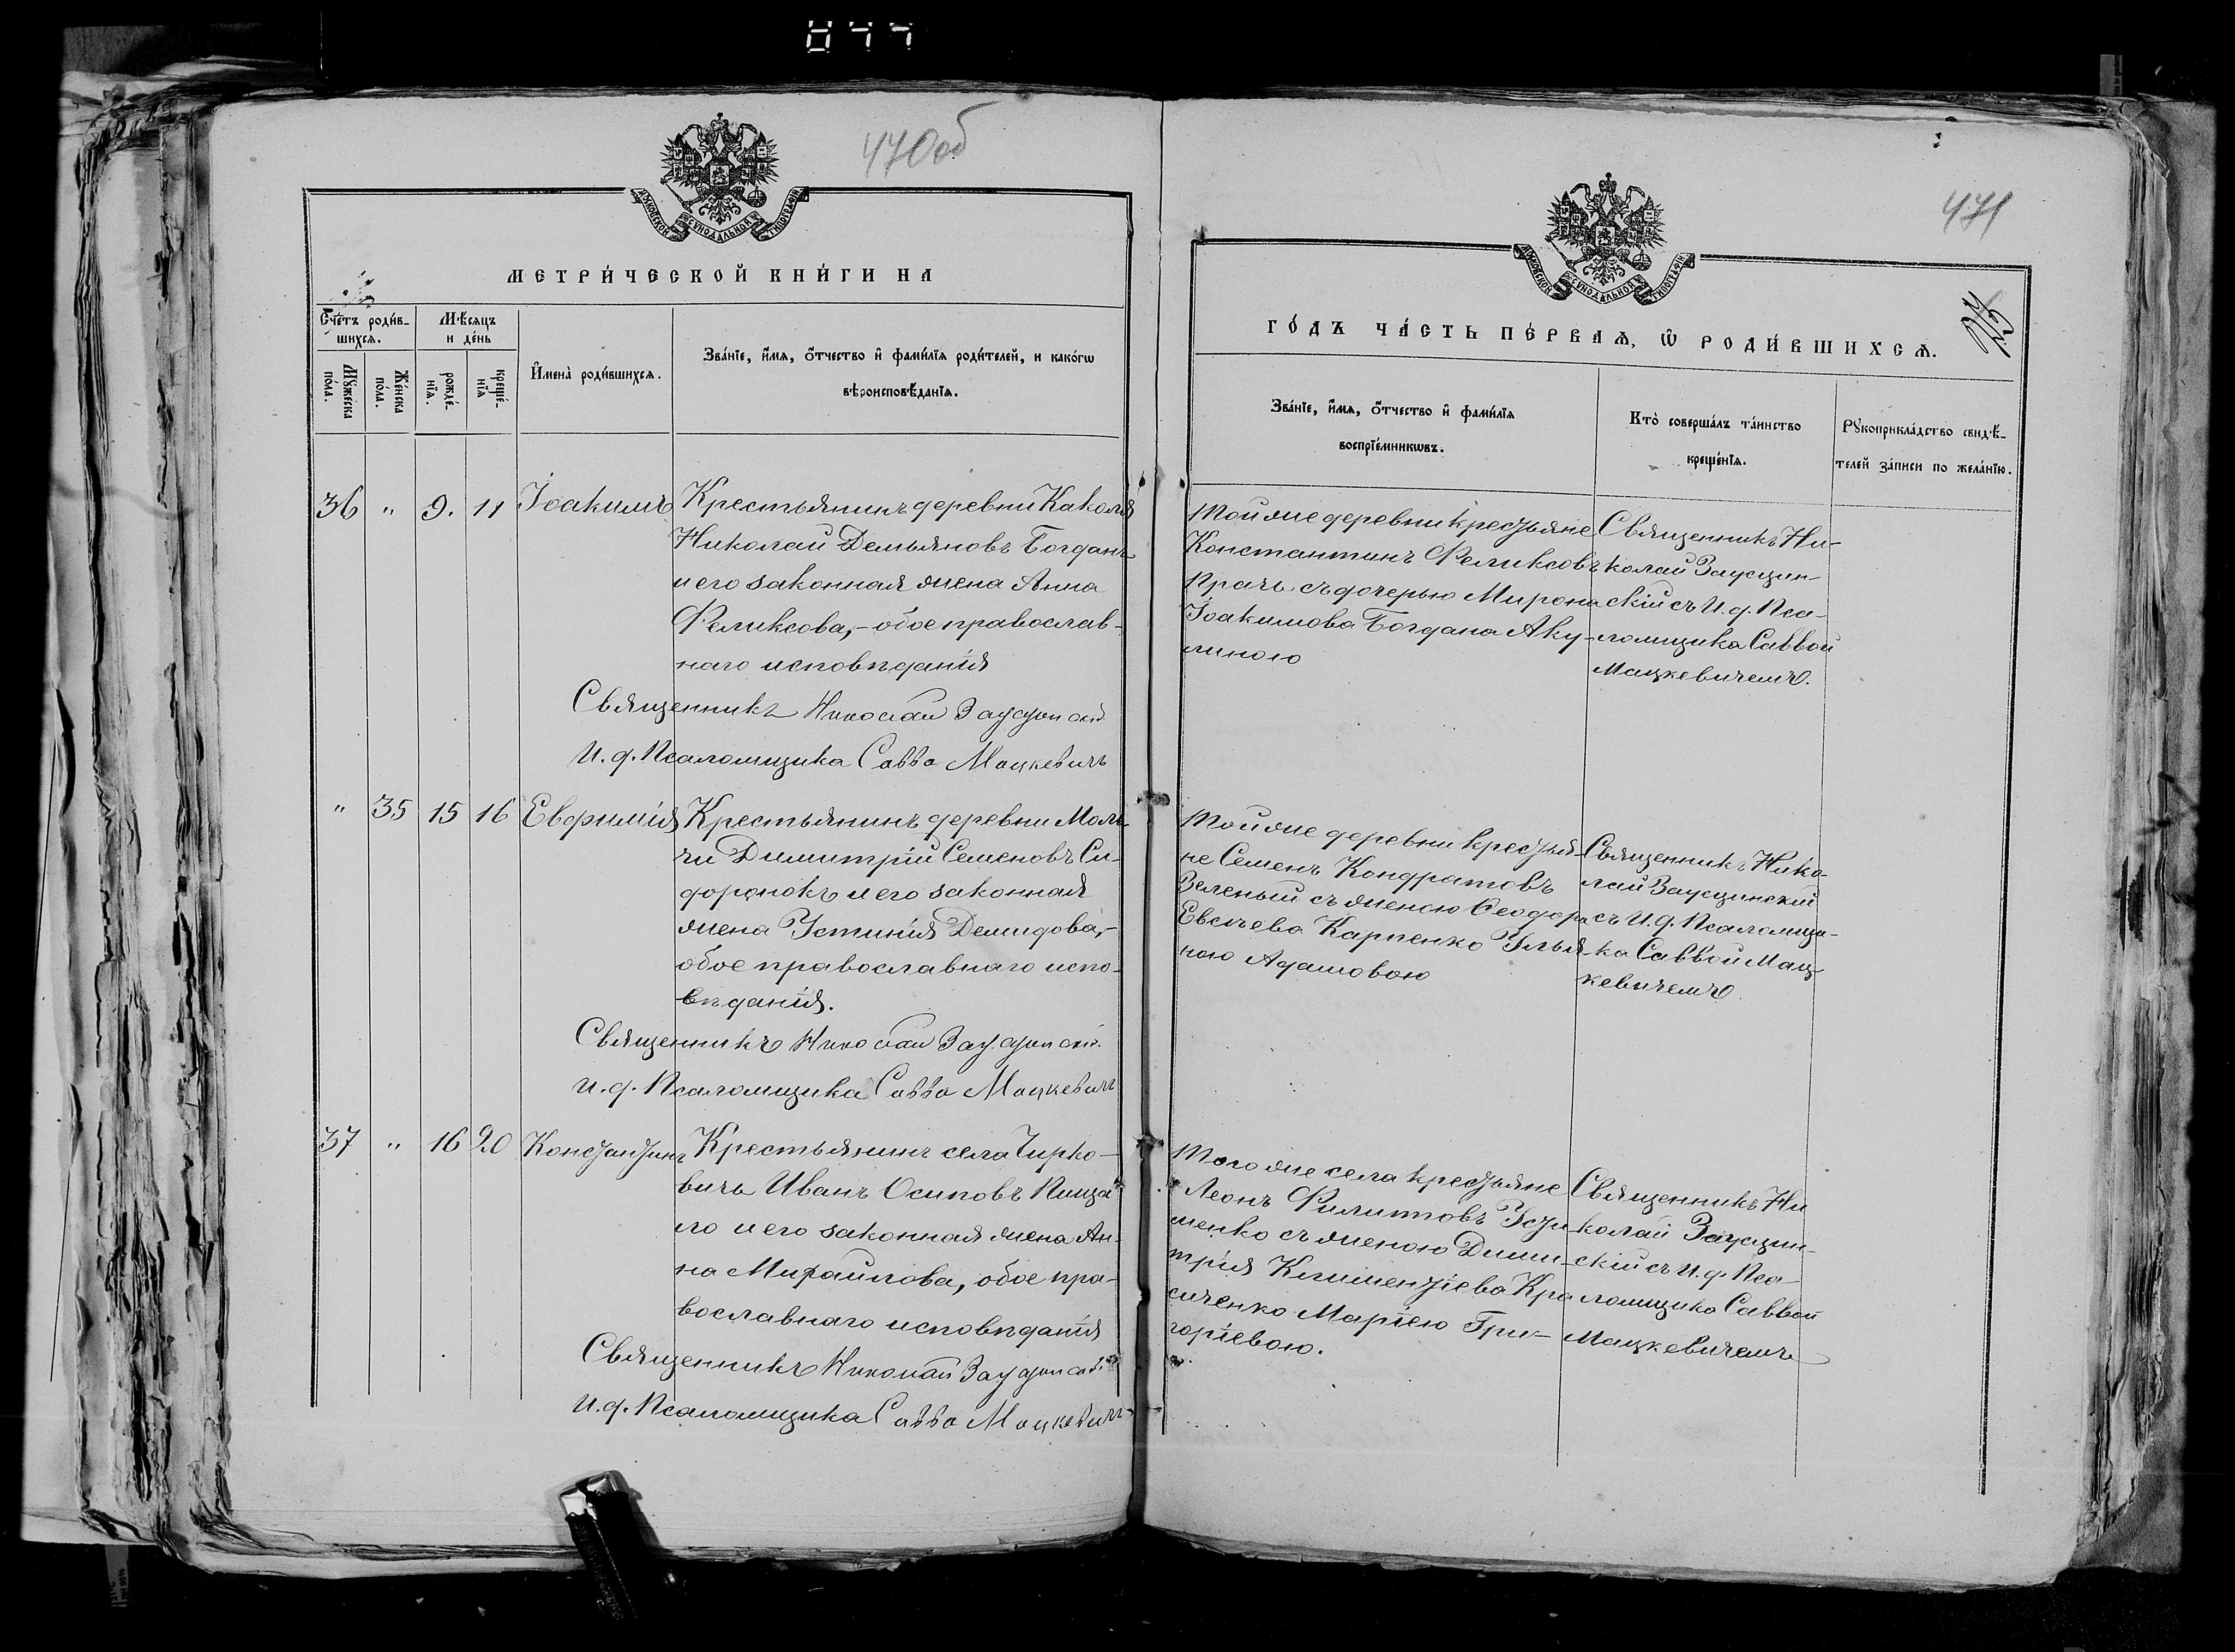 044
470об
МОСКОВСКОЙ СѴНОДАЛЬНОЙ ТИПОГРАФІИ
МЕТРИ́ЧЕСКОЙ КНИ́ГИ НА
Сче́тъ роди́в-
шихсѧ.
Мѣ́сѧцъ
и де́нь
Мꙋ́жеска
по́ла.
Же́нска
по́ла.
рожде́-
нїѧ.
креще́-
нїѧ
И҆мена̀ роди́вшихсѧ.
Зва́нїе, и҆́мѧ, ѻ҆́тчество и҆ фами́лїѧ роди́телей, и како́гѡ
вѣроисповѣ́данїѧ.
36 " 9. 11 Іоакимъ Крестьянинъ деревни Каколя
Николай Демьяновъ Богданъ
и его законная жена Анна
Феликсова,- обое православ-
наго исповѣданія
Священникъ Николай Заусцинскій
И. д. Псаломщика Савва Мацкевичъ
" 35 15 16 Евфимія Крестьянинъ деревни Мольчи
чи Димитрій Семеновъ Си-
доренокъ и его законная
жена Устинія Демидова,-
обое православнаго испо-
вѣданія.
Священникъ Николай Заусцинскій
и. д. Псаломщика Савва Мацкевичъ
37 " 16 20 Константинъ Крестьянинъ села Чирко-
вичъ Иванъ Осиповъ Пища
ло и его законная жена Ан-
на Михайлова, обое пра-
вославнаго исповѣданія
Священникъ Николай Заусцинскій
И. д. Псаломщика Савва Мацкевичъ
471
МОСКОВСКОЙ СѴНОДАЛЬНОЙ ТИПОГРАФІИ
ГО́ДЪ ЧА́СТЬ ПЕ́РВАѦ, Ѡ҆ РОДИ́ВШИХСѦ.
Зва́нїе, и҆́мѧ, ѻ҆́тчество и҆ фами́лїѧ
воспрїе́мникѡвъ.
Кто̀ соверша́лъ та́инство
креще́нїѧ.
Рꙋкоприкла́дство свидѣ́-
телей за́писи по жела́нїю.
Той же деревни крестьяне
Константинъ Феликсовъ
Прачь съ дочерью Мирона
Іоакимова Богдана Аку-
линою
Священникъ Ни-
колай Заусцин-
скій съ И. д. Пса-
ломщика Саввой
Мацкевичемъ.
Той же деревни крестья-
не Семенъ Кондратовъ
Зеленый съ женою Феодора
Евсѣева Карпенко Улья-
ною Адамовою
Священникъ Нико-
лай Заусцинскій
съ И. д. Псаломщи-
ка Саввой Мац-
кевичемъ
Того же села крестьяне
Леонъ Филиповъ Усти-
менко съ женою Дими-
трія Климентіева Кра
сиченко Маріею Гри-
горіевою.
Священникъ Ни
колай Заусцин-
скій съ И. д. Пса-
ломщика Саввой
Мацкевичемъ